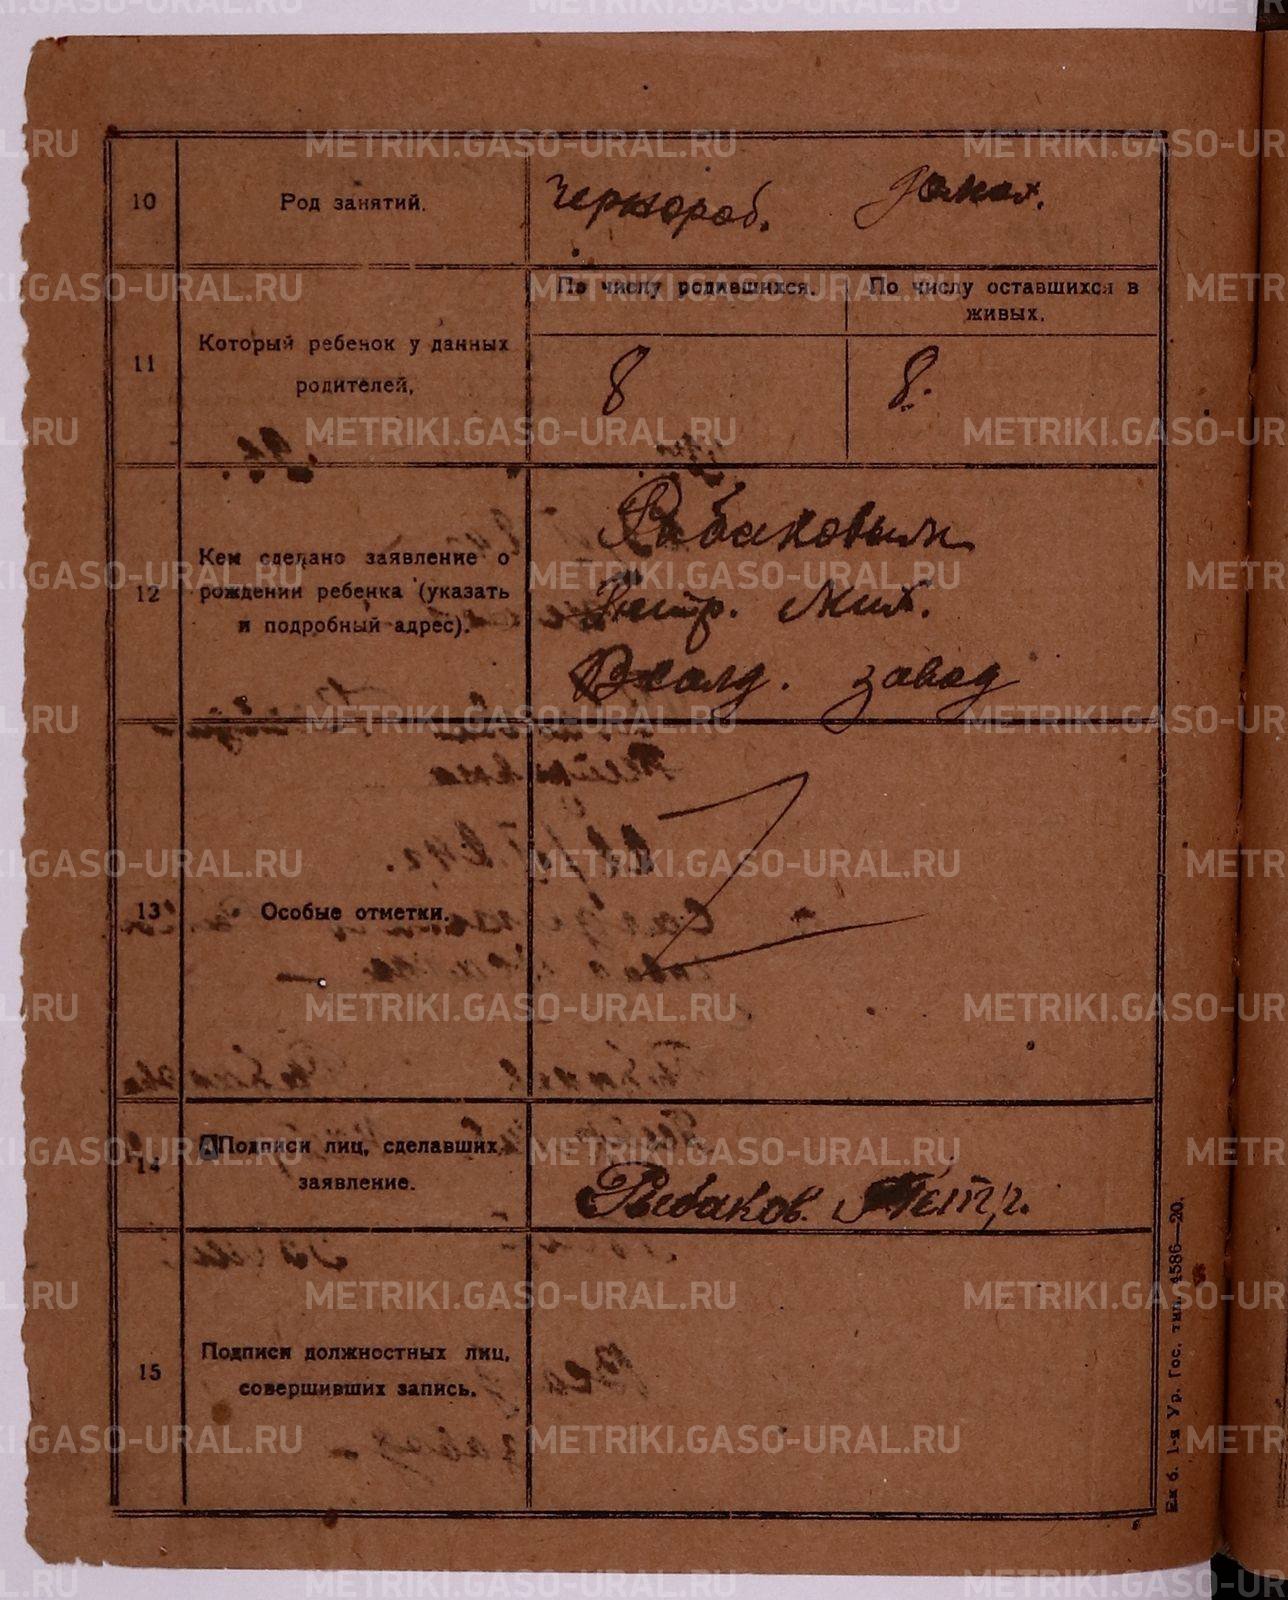 10 Род занятий. Чернораб. Домох.
По числу родившихся. По числу оставшихся в
живых.
11 Который ребенок у данных
родителей, 8 8.
12 Кем сделано заявление о
рождении ребенка (указать
и подробный адрес).
Рыбаковым
Петр. Мих.
Всалд. завод
13 Особые отметки.
14 Подписи лиц, сделавших
заявление.
Рыбаков. Петр.
15 Подписи должностных лиц,
совершивших запись.
Ек б. 1-я Ур. Гос. тип. 4586—20.
METRIKI.GASO-URAL.RU